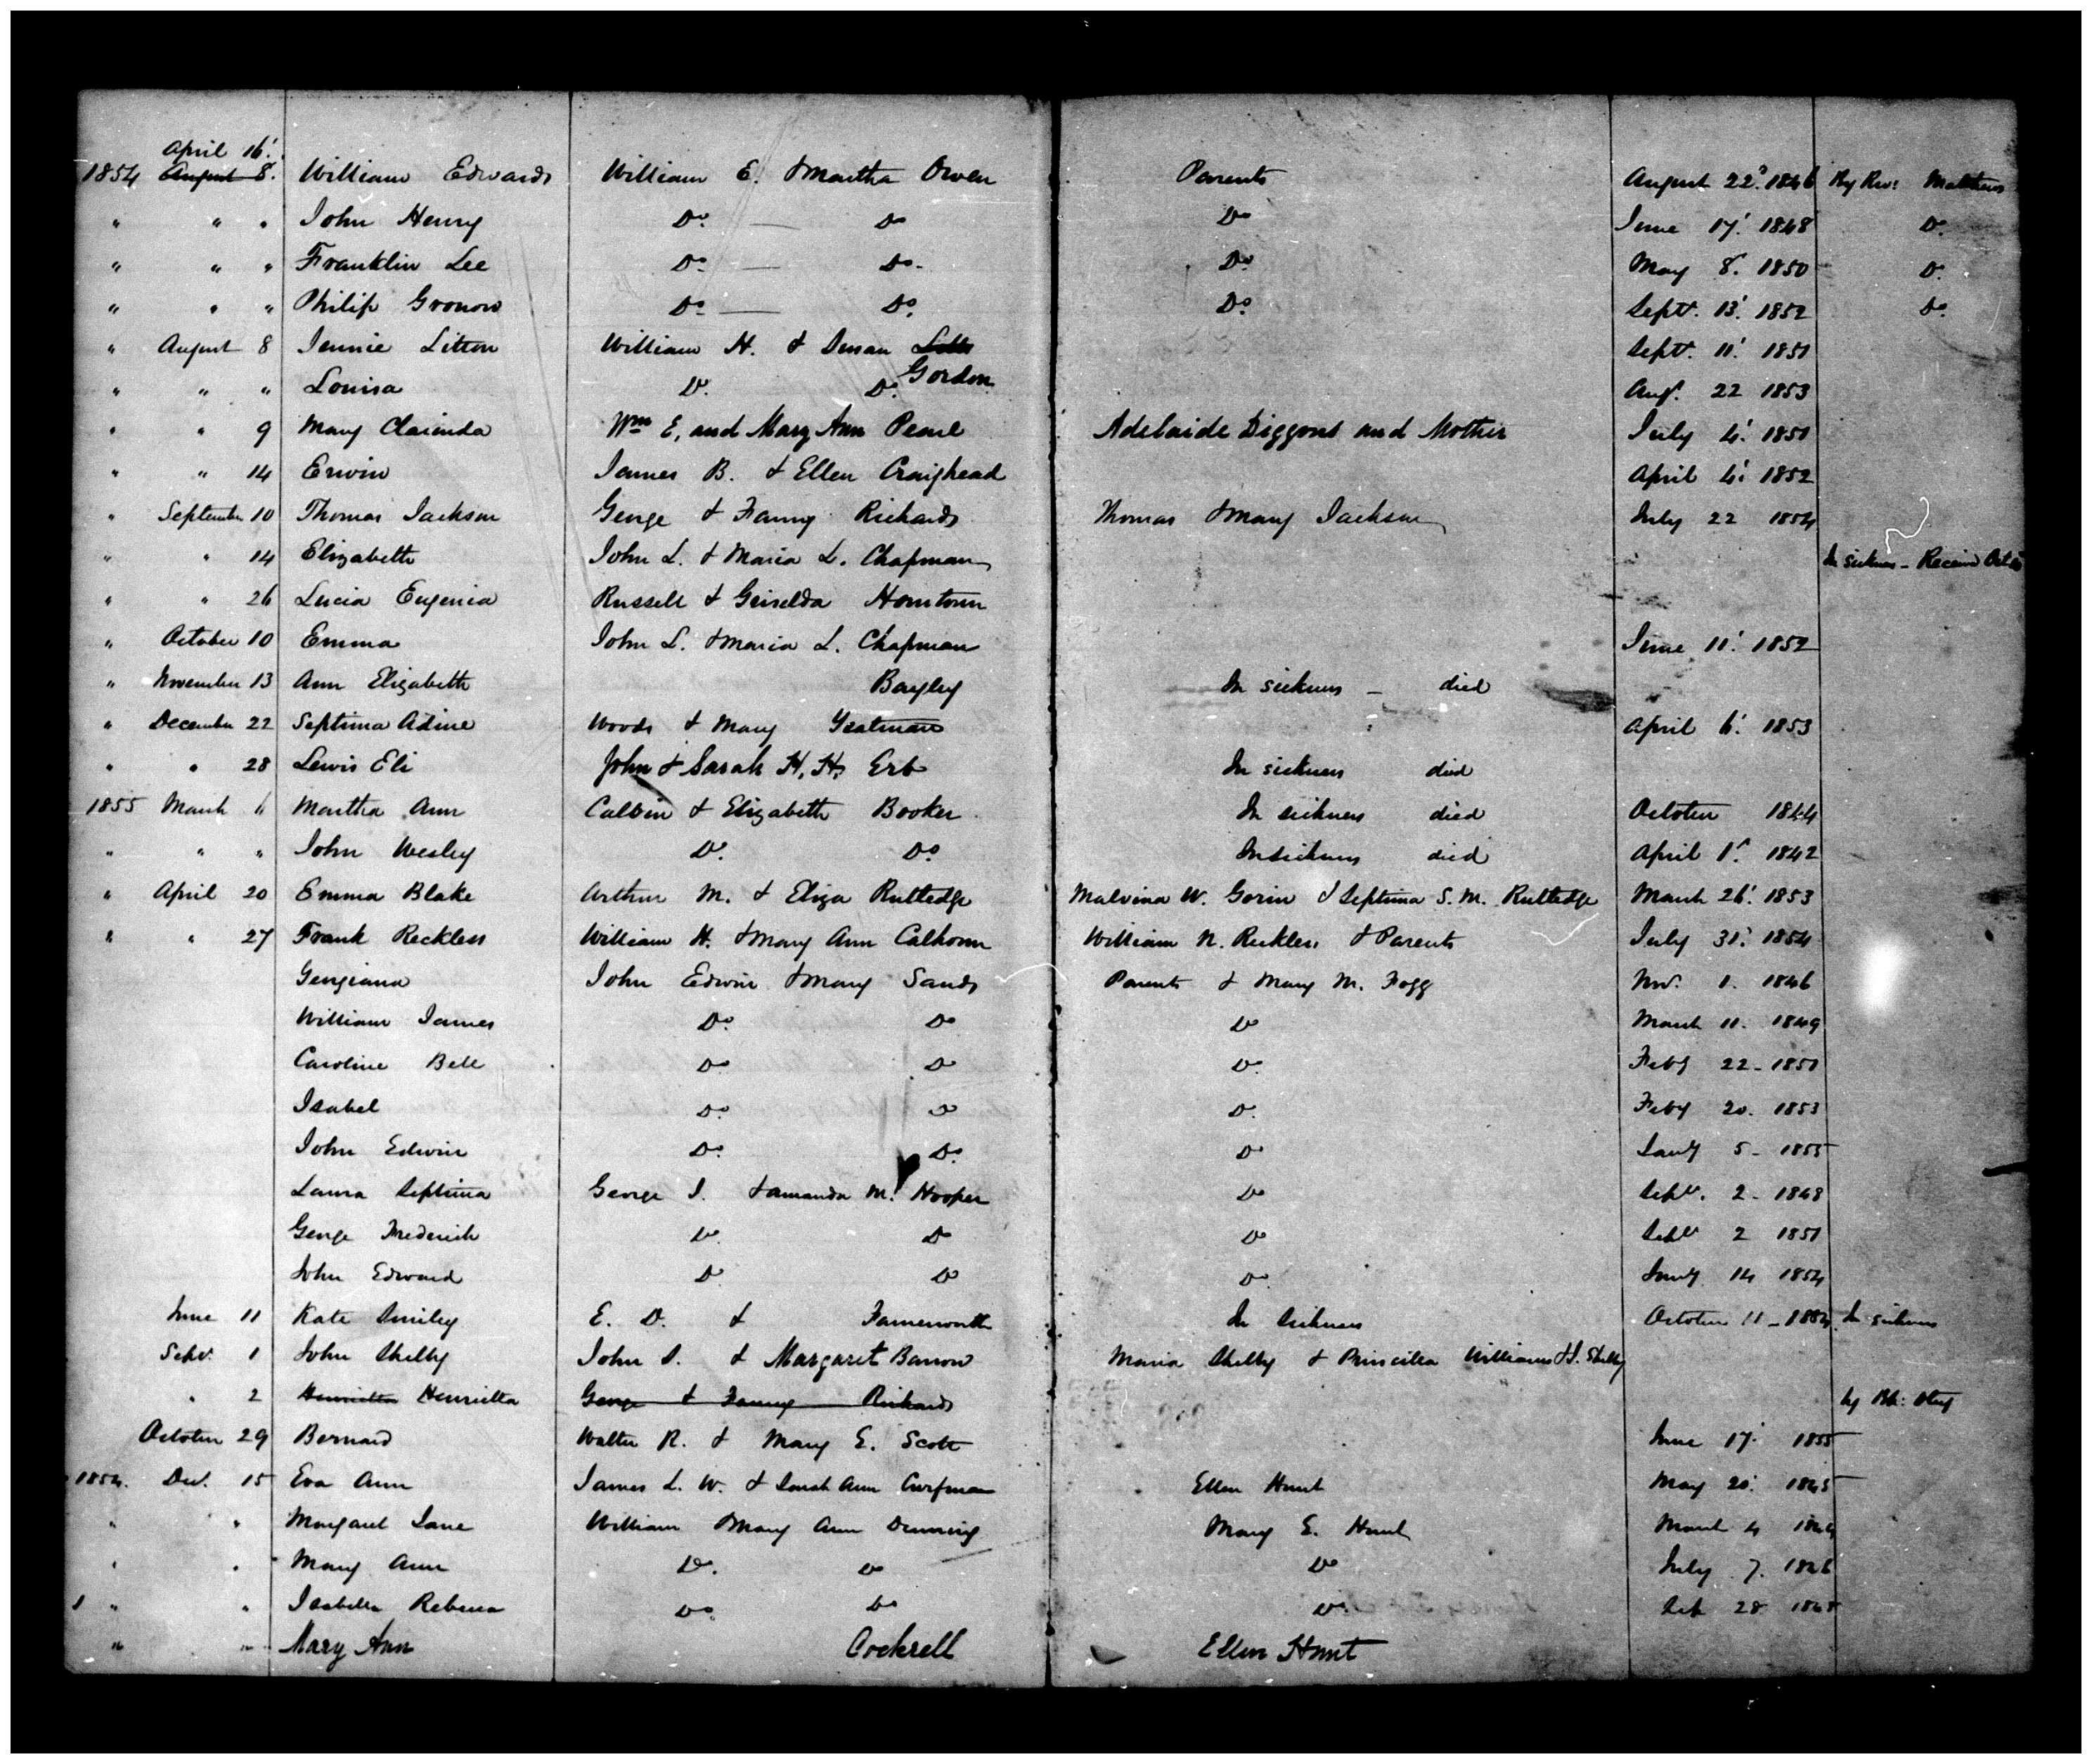 April 16.
1854 August 8. William Edwards William E. & Martha Owen Parents August 22d. 1846 By Rev: Matthews
" " " John Henry Do. — Do Do June 17. 1848 Do.
" " " Franklin Lee Do. — Do. Do. May 8. 1850 Do.
" " " Philip Gronow Do. — Do. Do. Septr. 13. 1852 Do.
" August 8 Jennie Litton William H. & Susan Sept. 11. 1851
Gordon
" " " Louisa Do. Do. Augt. 22 1853
" " 9 Mary Clarinda Wm E, and Mary Ann Pearl Adelaide Diggons and Mother July 4. 1851
" " 14 Erwin James B. & Ellen Craighead April 4. 1852
" September 10 Thomas Jackson George & Fanny Richards Thomas & Mary Jackson July 22 1854
" " 14 Elizabeth John L. & Maria L. Chapman In sickness - Receivd Oct 10
" " 26 Lucia Eugenia Russell & Griselda Houstoun
" October 10 Emma John L. & Maria L. Chapman June 11. 1852
" November 13 Ann Elizabeth Bayley In sickness - died
" December 22 Septima Adine Woods & Mary Yeatman April 6. 1853
" " 28 Lewis Eli John & Sarah H. H. Erb In sickness died
1855 March 6 Martha Ann Calvin & Elizabeth Booker In sickness died October 1844
" " " John Wesley Do. Do. In sickness died April 1st. 1842
" April 20 Emma Blake Arthur M. & Eliza Rutledge Malvina W. Gorin & Septima S. M. Rutledge March 26. 1853
" " 27 Frank Reckless William H. & Mary Ann Calhoun William N. Reckless & Parents July 31. 1854
Georgiana John Edwin & Mary Sands Parents & Mary M. Fogg Nov. 1. 1846
William James Do. Do Do March 11. 1849
Caroline Bell Do Do Do. Feby 22 - 1851
Isabel Do. Do Do. Feby 20. 1853
John Edwin Do. Do. Do Jany 5 - 1855
Laura Septima George J. & Amanda M. Hooper Do Sept. 2 - 1848
George Frederick Do. Do Do Sept 2 1851
John Edward Do. Do Do. Jany 14 1854
June 11 Kate Smiley E. D. & Farnsworth In sickness October 11 - 1854 In sickness
Sept. 1 John Shelby John S. & Margaret Barrow Maria Shelby & Priscilla Williams & J. Shelby
" 2 Henrietta Henrietta George & Fanny Richards by Bp: Otey
October 29 Bernard Walter R. & Mary E. Scott June 17. 1855
1854. Dec. 15 Eva Ann James L. W. & Sarah Ann Curfman Ellen Hunt May 20. 1845
" " Margaret Jane William & Mary Ann Dunning Mary E. Hunt March 4 1844
" " Mary Ann Do. Do Do July 7. 1846
" " Isabella Rebecca Do. Do Do. Feb 28 1848
" " Mary Ann Cockrell Ellen Hunt